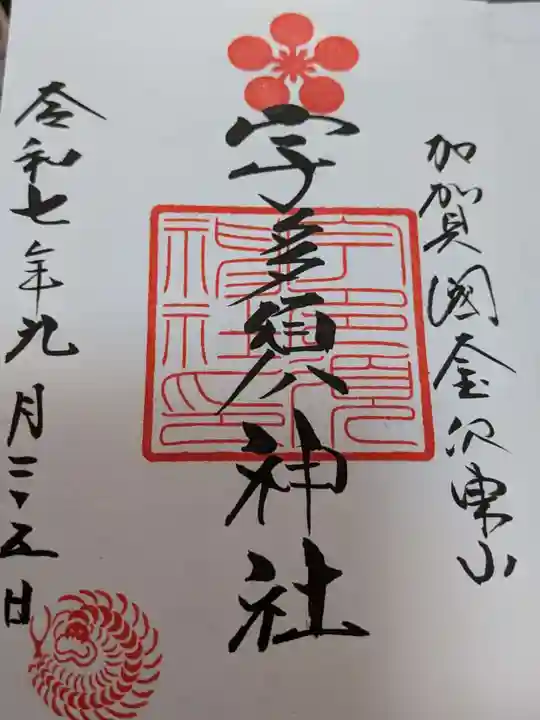 加賀國金沢東山
宇多須神社
令和七年九月二十五日